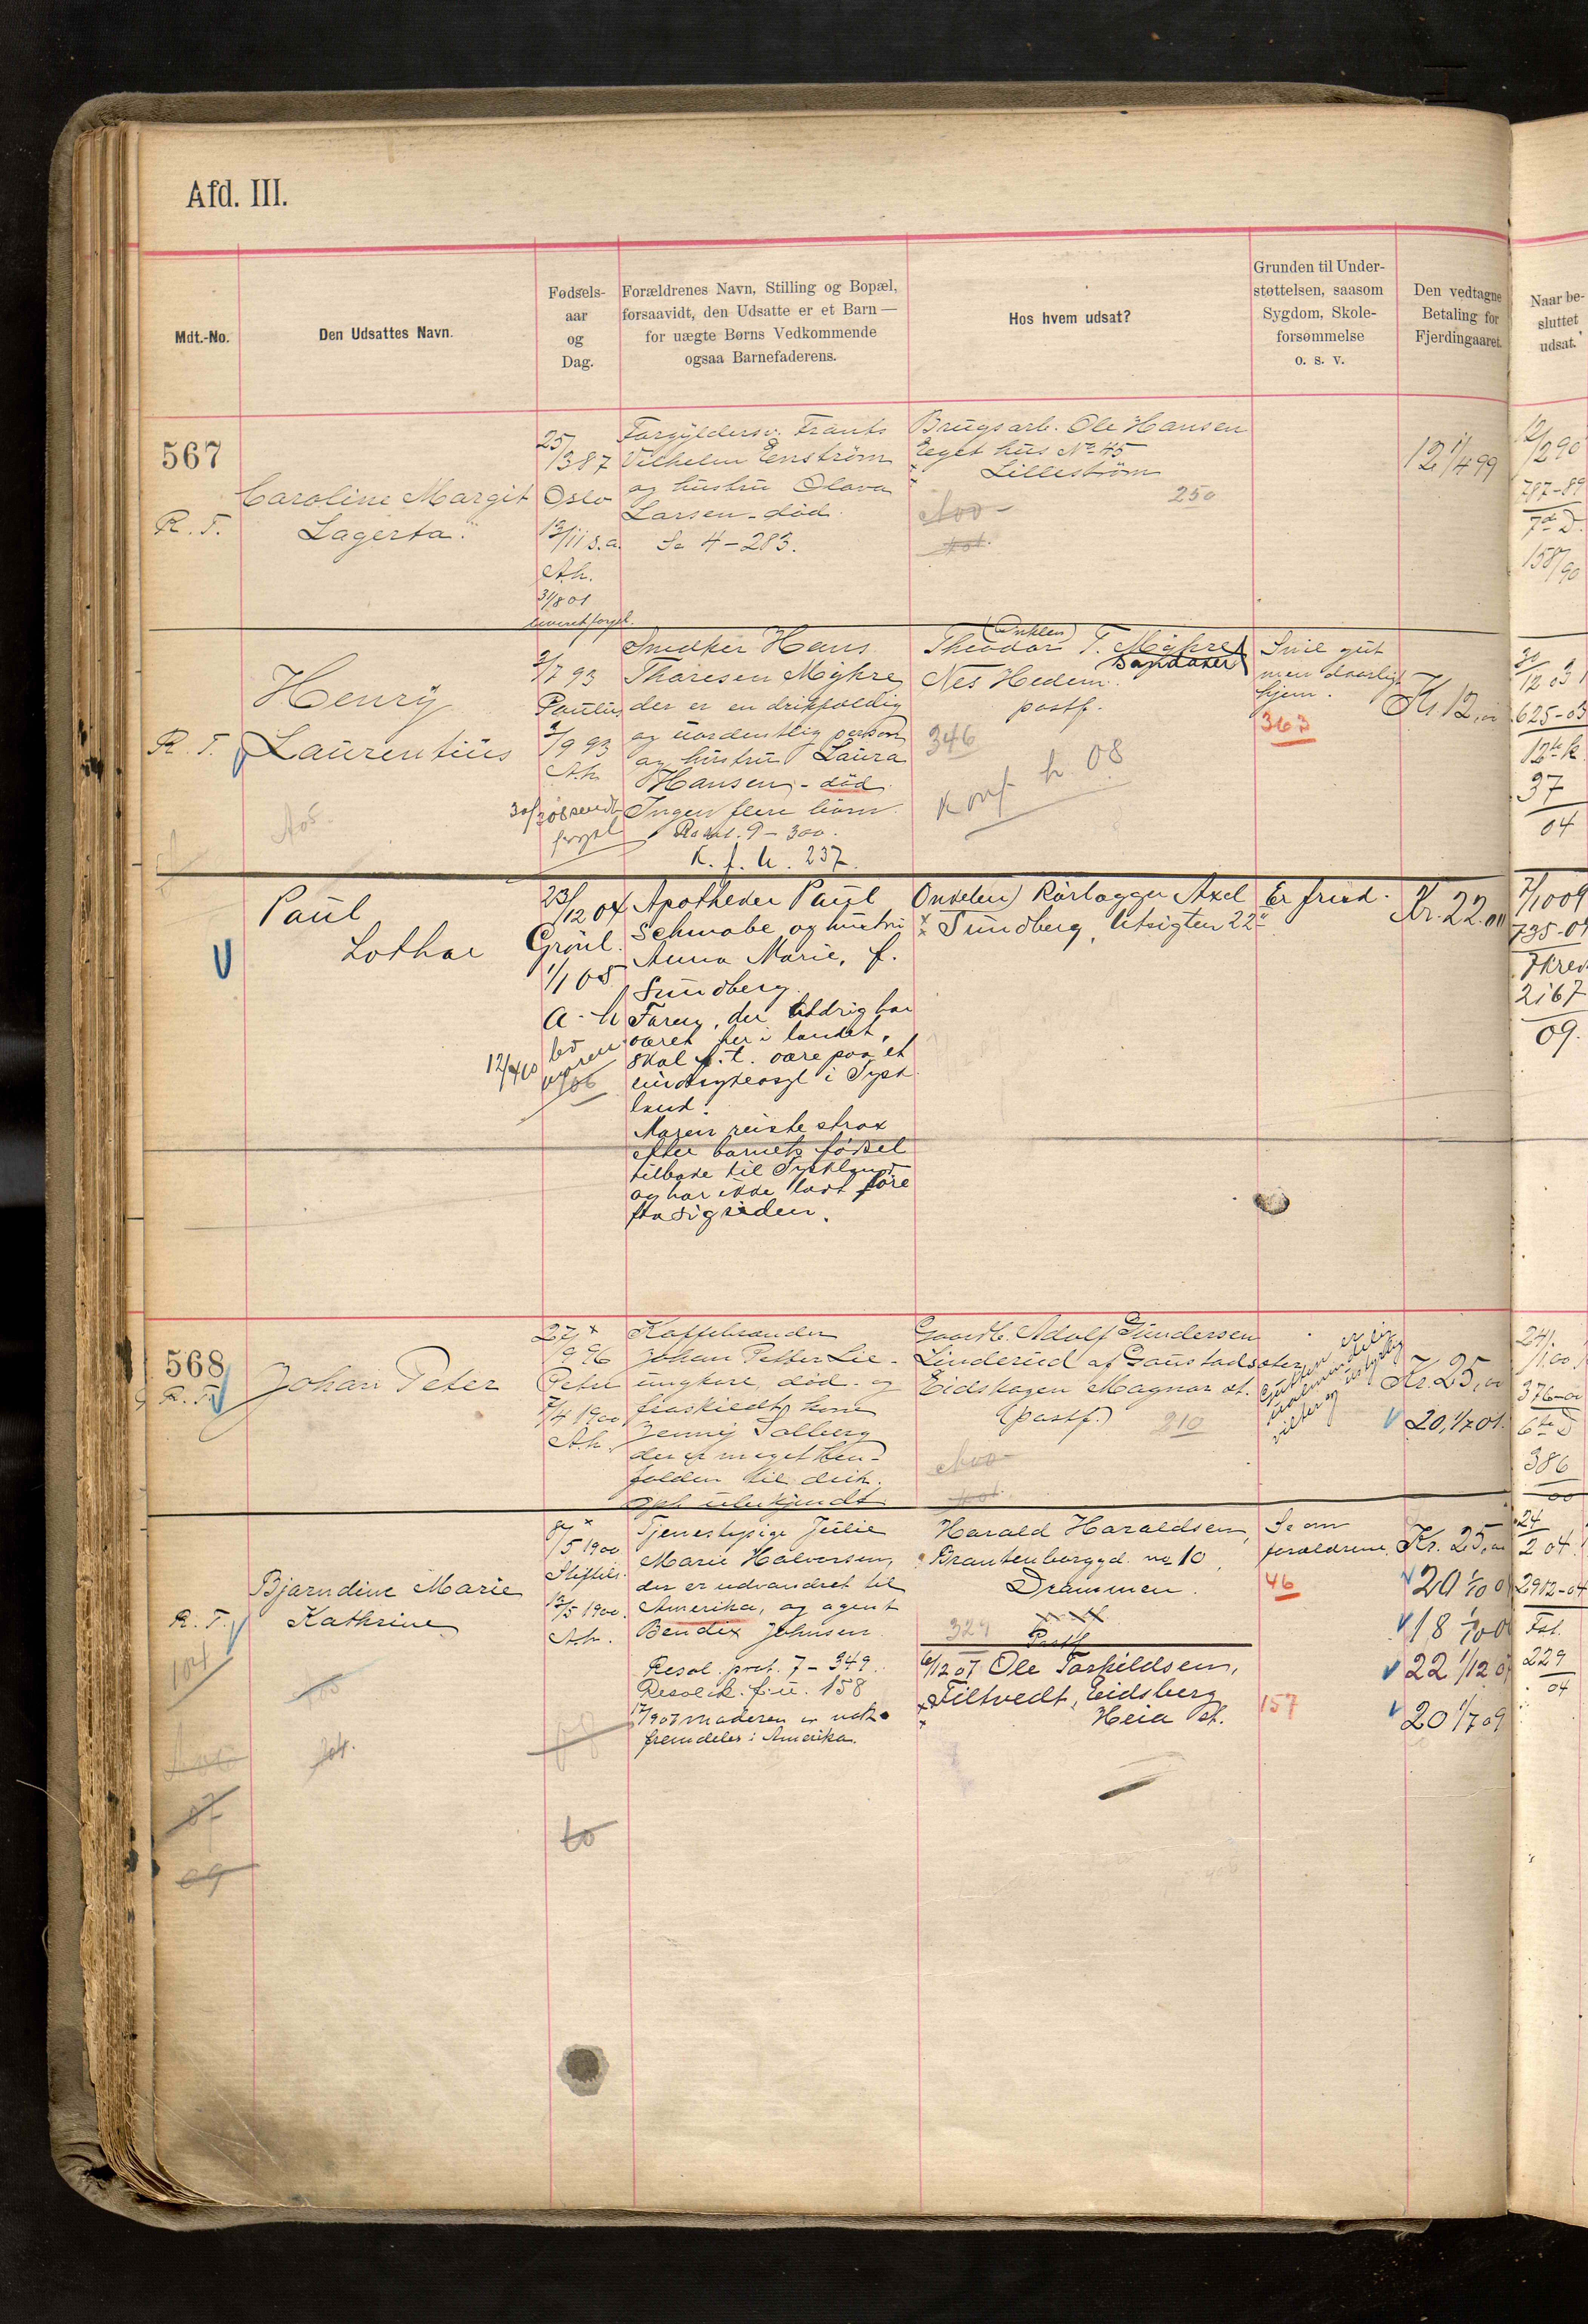 Afd. III.
Mdt.-No.
Den Udsattes Navn.
Fødsels-
aar
og
Dag.
Forældrenes Navn, Stilling og Bopæl,
forsaavidt, den Udsatte er et Barn —
for uægte Børns Vedkommende
ogsaa Barnefaderens.
Hos hvem udsat?
Grunden til Under-
støttelsen, saasom
Sygdom, Skole-
forsømmelse
o. s. v.
Den vedtagne
Betaling for
Fjerdingaaret.
Naar be-
sluttet
udsat.
567
R. T.
Caroline Margit
Lagerta
25/
1387
Oslo
13/11 s.a.
Ah.
31/8 01
Forgyldersv. Frants
Vilhelm Enström
og hustru Olava
Larsen - död.
Se 4-283.
Brugsarb. Ole Hansen
Eget hus No 45
Lilleström
250
12 1/4 99
12/2 90
787-89
7de D.
158/90
R. T.
Henry
Laurentius
2/7 93
Paulus
3/9 93
Ah
Smedker Hans
Thoresen Myhre
der er en drikfældig
og uordentlig person
og hustru Laura
Hansen - död
Ingen flere börn
9-300.
K. f. u. 237
Onklen
Theodor T. Myhre
Nes Hedem.
postf.
346
Konf. h 08
Snil gut
men daarligt
hjem.
363
Kr. 12,00
31/12 03
625-03
12te k
37
04
Paul
Lothar
23/12 04
Grönl.
1/1 05
a-h
12/4 10
Apotheker Paul
Schwabe og hustru
Anna Marie, f.
Sundberg.
Faren, der aldrig har
været her i landet,
skal p.t. være paa et
sindsygeasyl i Tysk
land.
Moren reiste strax
efter barnets födsel
tilbage til Tyskland
og har ikke ladt höre
fra sig siden.
Onkelen Rörlægger Axel
Sundberg, Utsigten 22
Er frisk.
Kr. 22.00
7/10 09
735-09
7kred
2167
09.
568
R. T.
Johan Peter
27/9 96
Petri
7/4 1900
Ah.
Kaffebrænder
Johan Petter Lie-
ungkarl, död - og
fraskildt kone
Jenny Solberg
der er meget hen-
falden til drik.
Gaardb. Adolf Gundersen
Linderud af Gaustadsæter
Eidskogen Magnor st.
(postf.)
210
Kr. 25,00
20, 1/7 01.
24/
11.00
376-00
6te D
386
00
R. T.
Bjarndine Marie
Kathrine
104
8/5 1900
13/5 1900.
Ah.
Tjenestepige Julie
Marie Halvorsen,
der er udvandret til
Amerika, og agent
Bendix Johnsen
Resol. prot. 7-349.
Resol k. f. u. 158
17/9 07 moderen er nok
fremdeles i Amerika.
Harald Haraldsen,
Brantenborggd. no 10
Drammen.
329
Postf
6/12 07 Ole Torkildsen,
Tiltvedt, Eidsberg
Heia st.
Se om
forældrene.
46
157
Kr. 25,00
20
18
22 1/12 07
20 1/7 09
24/2 04
2912-04
Fst.
229
04
07
09
10